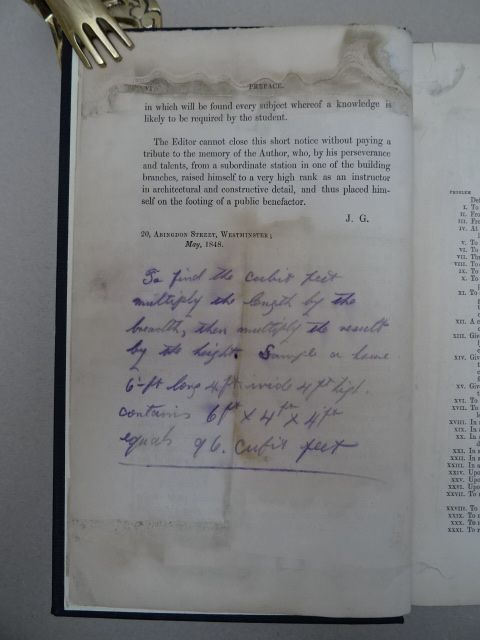 vi PREFACE.
in which will be found every subject whereof a knowledge is
likely to be required by the student.
The Editor cannot close this short notice without paying a
tribute to the memory of the Author, who, by his perseverance
and talents, from a subordinate station in one of the building
branches, raised himself to a very high rank as an instructor
in architectural and constructive detail, and thus placed him-
self on the footing of a public benefactor.
J. G.
20, Abingdon Street, Westminster;
May, 1848.
To find the cubit feet
multiply the length by the
breadth, then multiply the result
by the height. Sample a
6 ft long 4 ft wide 4 ft high.
contains 6 ft x 4 ft x 4 ft
equals 96. cubit feet
PROBLEM
I. To
II. Fro
III. Fro
IV. At
V. To
VI. To
VII. Th
VIII. To
IX. To
X. To
XI. To
XII. A c
XIII. Giv
XIV. Giv
XV. Giv
XVI. To
XVII. To
XVIII. In
XIX. In
XX. In
XXI. In
XXII. In
XXIII. In
XXIV. Upo
XXV. Upo
XXVI. Upo
XXVII. To
XXVIII. To
XXIX. To
XXX. To
XXXI. To